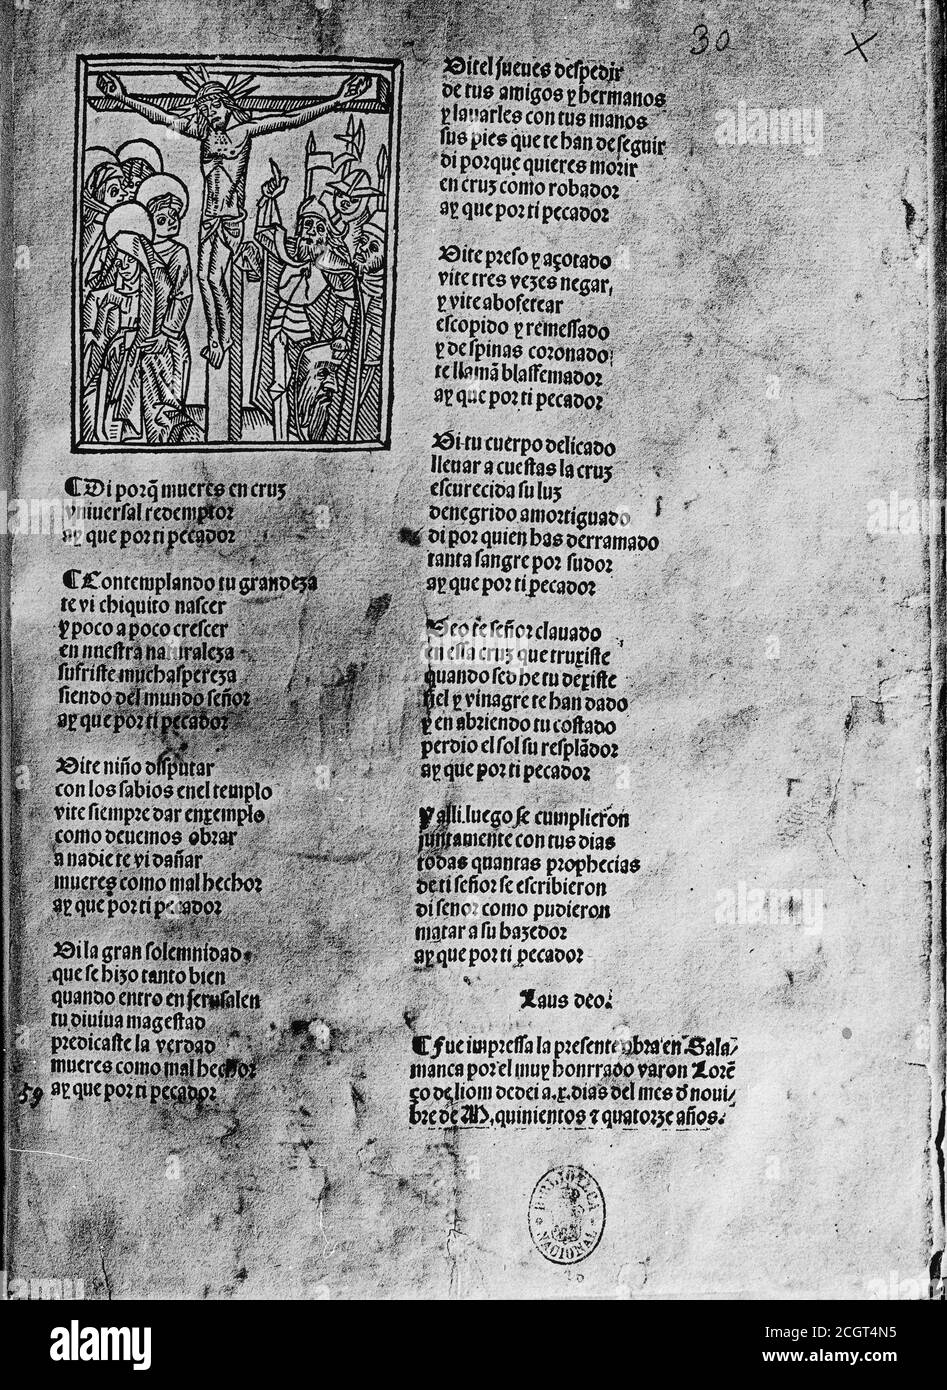 30
¶Di porq̃ mueres en cruz
vniuersal redemptor
ay que por ti pecador
¶Contemplando tu grandeza
te vi chiquito nascer
y poco a poco crescer
en nuestra naturaleza
sufriste mucha aspereza
siendo del mundo señor
ay que por ti pecador
Vite niño disputar
con los sabios enel templo
vite siempre dar enxemplo
como deuemos obrar
a nadie te vi dañar
mueres como mal hechor
ay que por ti pecador
Vi la gran solemnidad
que se hizo tanto bien
quando entro en jerusalen
tu diuiua magestad
predicaste la verdad
mueres como mal hechor
59 ay que por ti pecador
Vitel jueues despedir
de tus amigos y hermanos
y lauarles con tus manos
sus pies que te han de seguir
di porque quieres morir
en cruz como robador
ay que por ti pecador
Vite preso y açotado
vite tres vezes negar,
y vite abofetear
escopido y remessado
y de spinas coronado
te llamã blassemador
ay que por ti pecador
Vi tu cuerpo delicado
lleuar a cuestas la cruz
escurecida su luz
denegrido amortiguado
di por quien has derramado
tanta sangre por sudor
ay que por ti pecador
Veo te señor clauado
en essa cruz que truxiste
quando sed he tu dexiste
hiel y vinagre te han dado
y en abriendo tu costado
perdio el sol su resplãdor
ay que por ti pecador
Y alli luego se cumplieron
juntamente con tus dias
todas quantas prophecias
de ti señor se escribieron
di señor como pudieron
matar a su hazedor
ay que por ti pecador
Laus deo.
¶Fue impressa la presente obra en Sala/
manca por el muy honrrado varon Lorẽ
ço de liom dedei a .x. dias del mes d̃ noui/
bre de M. quinientos ⁊ quatorze años.
BIBLIOTECA NACIONAL
alamy
Image ID: 2CGT4N5
www.alamy.com